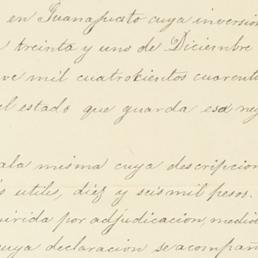 en Guanajuato cuya inversión
treinta y uno de Diciembre
ve mil cuatrocientos cuarent
el estado que guarda esa neg
ala misma cuya descripcion
s utiles, diez y seis mil pesos.
uirida por adjudicacion, medid
cuya declaracion se acompañ